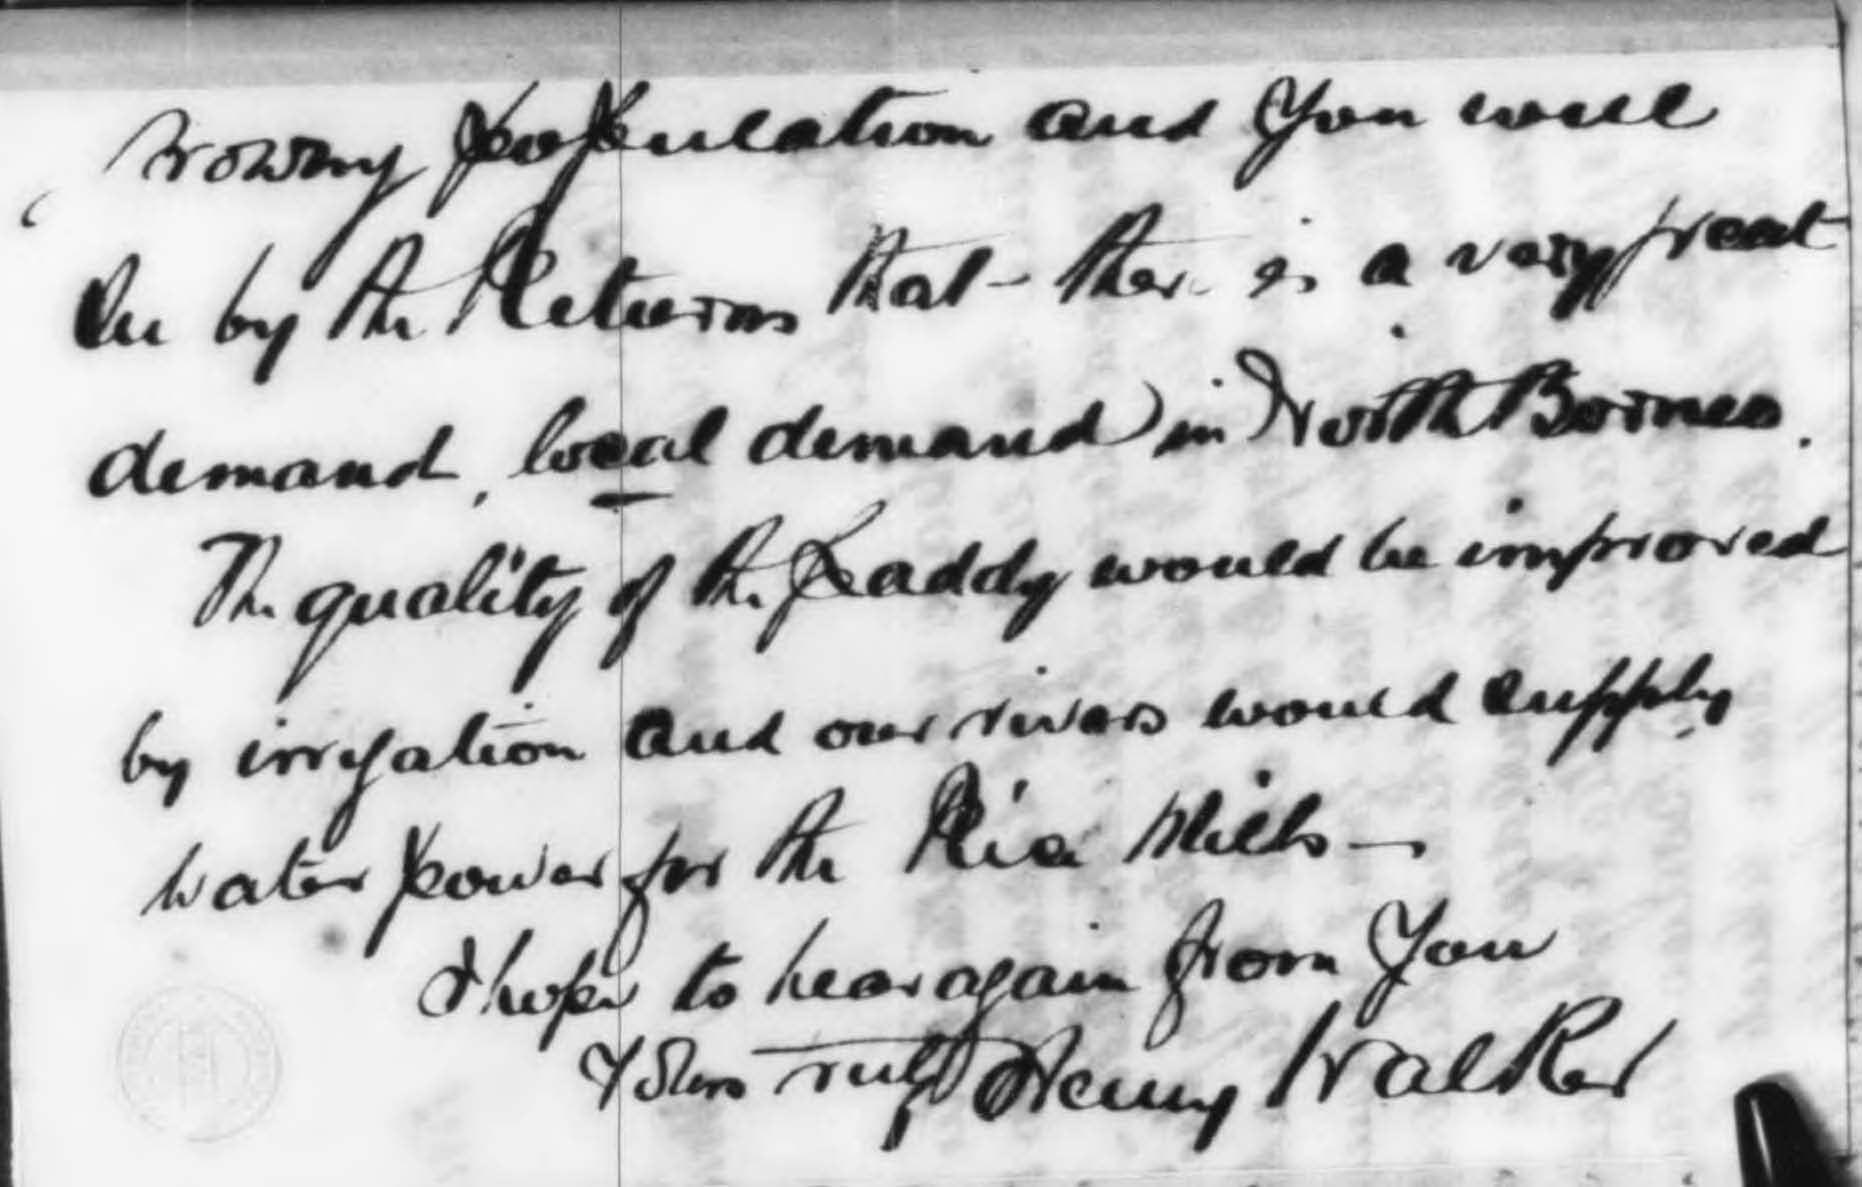 growing population and you will
see by the Returns that there is a very great
demand, local demand in North Borneo.
The quality of the Paddy would be improved
by irrigation and our rivers would supply
water power for the Rice Mills —
I hope to hear again from you
Yours truly Henry Walker